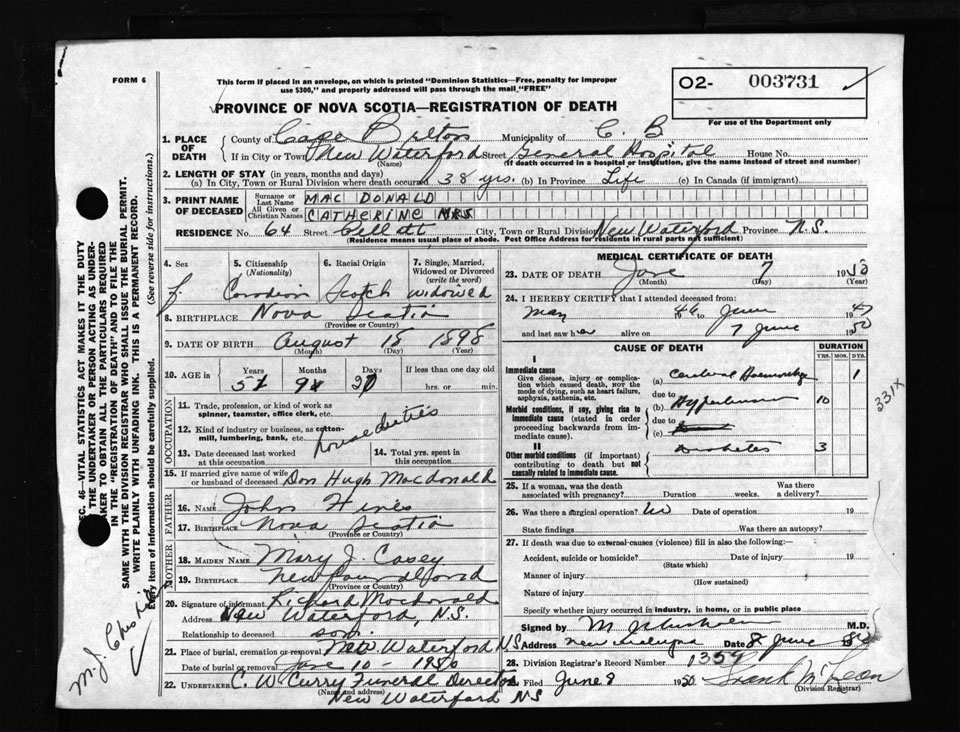 FORM 6
This form if placed in an envelope, on which is printed "Dominion Statistics—Free, penalty for improper
use $300," and properly addressed will pass through the mail "FREE"
O2- 003731
For use of the Department only
PROVINCE OF NOVA SCOTIA—REGISTRATION OF DEATH
1. PLACE OF DEATH
County of Cape Breton Municipality of C. B.
If in City or Town New Waterford Street General Hospital House No.
(Name) (If death occurred in a hospital or institution, give the name instead of street and number)
2. LENGTH OF STAY (in years, months and days)
(a) In City, Town or Rural Division where death occurred 38 yrs. (b) In Province Life (c) In Canada (if immigrant)
3. PRINT NAME OF DECEASED
Surname or Last Name MAC DONALD
All Given or Christian Names CATHERINE MRS
RESIDENCE No. 64 Street City, Town or Rural Division New Waterford Province N.S.
(Residence means usual place of abode. Post Office Address for residents in rural parts not sufficient)
4. Sex f.
5. Citizenship (Nationality) Canadian
6. Racial Origin Scotch
7. Single, Married, Widowed or Divorced (write the word) widowed
8. BIRTHPLACE Nova Scotia
(Province or Country)
9. DATE OF BIRTH August 18 1898
(Month) (Day) (Year)
10. AGE in Years Months Days If less than one day old
51 9 20 hrs. or min.
OCCUPATION
11. Trade, profession, or kind of work as spinner, teamster, office clerk, etc.
12. Kind of industry or business, as cotton-mill, lumbering, bank, etc.
house duties
13. Date deceased last worked at this occupation
14. Total yrs. spent in this occupation
15. If married give name of wife or husband of deceased Don Hugh MacDonald
FATHER
16. NAME John Hines
17. BIRTHPLACE Nova Scotia
(Province or Country)
MOTHER
18. MAIDEN NAME Mary J. Casey
19. BIRTHPLACE Newfoundland
(Province or Country)
20. Signature of informant Richard MacDonald
Address New Waterford, N.S.
Relationship to deceased son.
21. Place of burial, cremation or removal New Waterford NS
Date of burial or removal June 10 - 1950
22. UNDERTAKER C. W. Curry Funeral Director
(Name and address)
New Waterford NS
MEDICAL CERTIFICATE OF DEATH
23. DATE OF DEATH June 7 1950
(Month) (Day) (Year)
24. I HEREBY CERTIFY that I attended deceased from:
May 1946 to June 19
and last saw her alive on 7 June 1950
CAUSE OF DEATH
DURATION
YRS. MOS. DYS.
I
Immediate cause
Give disease, injury or complication which caused death, NOT the mode of dying, such as heart failure, asphyxia, asthenia, etc.
(a) Cerebral Haemorrhage 1
due to
(b) Hypertension 10
due to
(c)
Morbid conditions, if any, giving rise to immediate cause (stated in order proceeding backwards from immediate cause).
II
Other morbid conditions (if important) contributing to death but not causally related to immediate cause.
Diabetes 3
331X
25. If a woman, was the death associated with pregnancy? Duration weeks. Was there a delivery?
26. Was there a surgical operation? no Date of operation 19
State findings Was there an autopsy?
27. If death was due to external causes (violence) fill in also the following:—
Accident, suicide or homicide? Date of injury 19
(State which)
Manner of injury
(How sustained)
Nature of injury
Specify whether injury occurred in industry, in home, or in public place
Signed by M.D.
Address New Waterford Date 8 June 1950
28. Division Registrar's Record Number 1359
Filed June 8 1950 Frank McLean
(Division Registrar)
SEC. 46—VITAL STATISTICS ACT MAKES IT THE DUTY
THE UNDERTAKER OR PERSON ACTING AS UNDER-
TAKER TO OBTAIN ALL THE PARTICULARS REQUIRED
IN THE "REGISTRATION OF DEATH" AND TO FILE THE
SAME WITH THE DIVISION REGISTRAR WHO SHALL ISSUE THE BURIAL PERMIT.
WRITE PLAINLY WITH UNFADING INK. THIS IS A PERMANENT RECORD.
Every item of information should be carefully supplied. (See reverse side for instructions.)